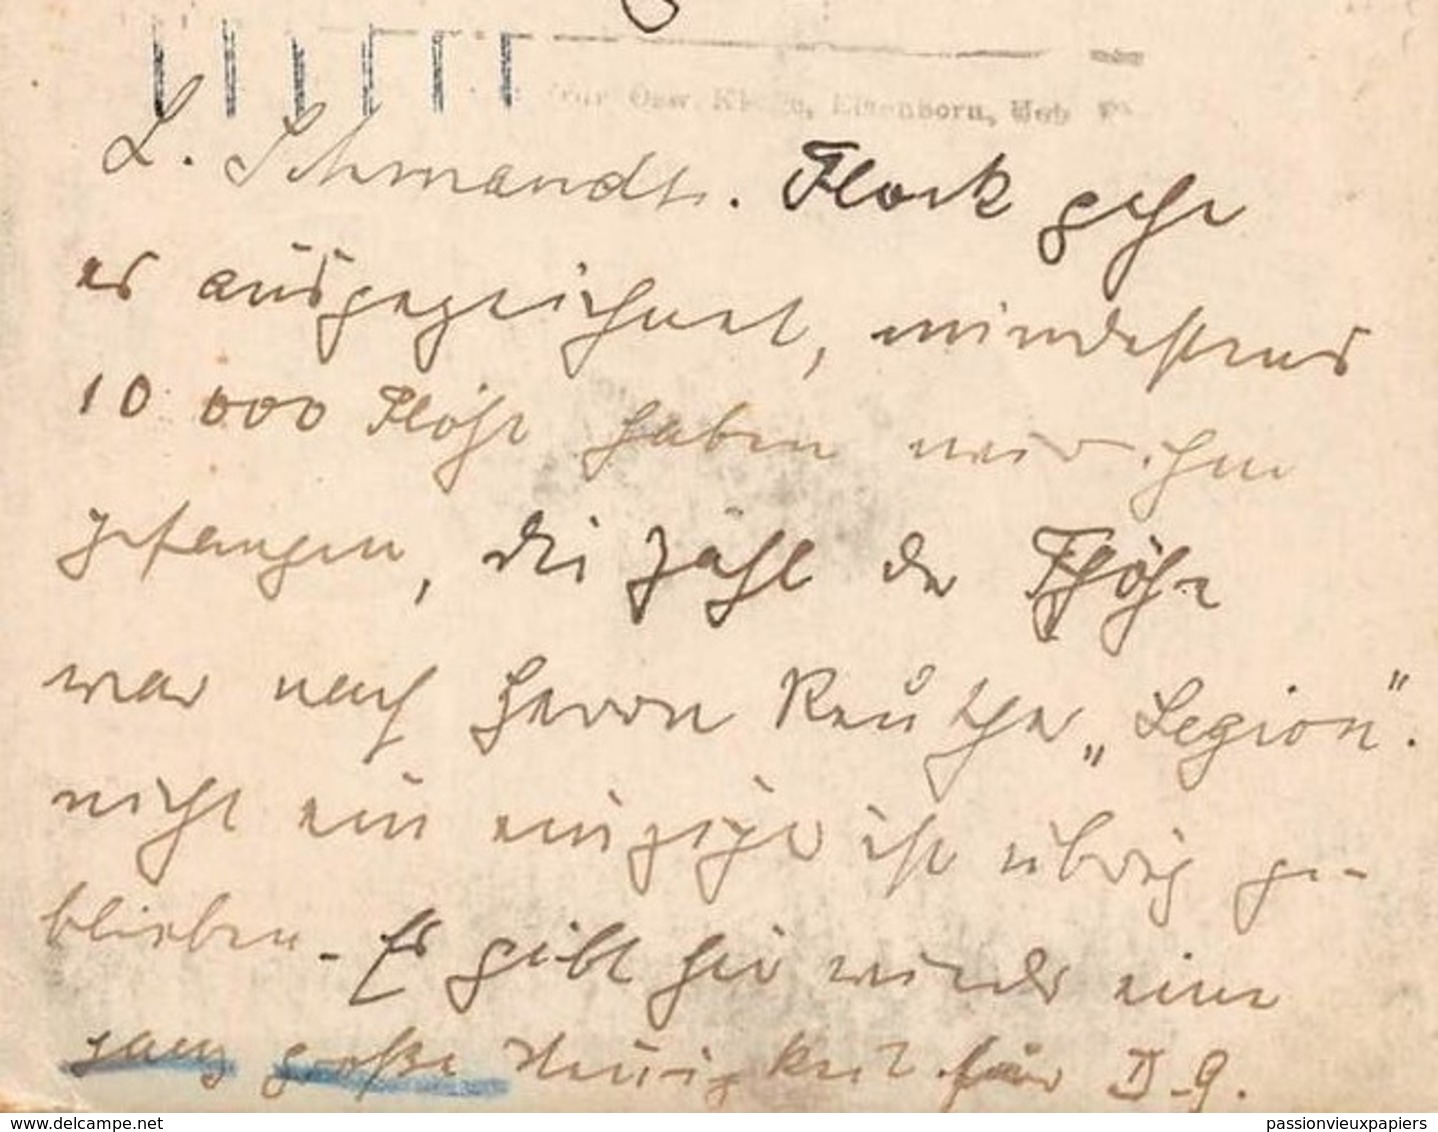 Elsenborn,
L. Schmandt. Flock gehe
es ausgezeichnet, mindestens
10 000 Flöhe haben wir ihm
gefangen, die Zahl der Flöhe
war nach Herrn Reuther „Legion".
nicht ein einziger ist übrig ge-
blieben. Es gibt hier wieder eine
ganz große Neuigkeit für
www.delcampe.net
passionvieuxpapiers